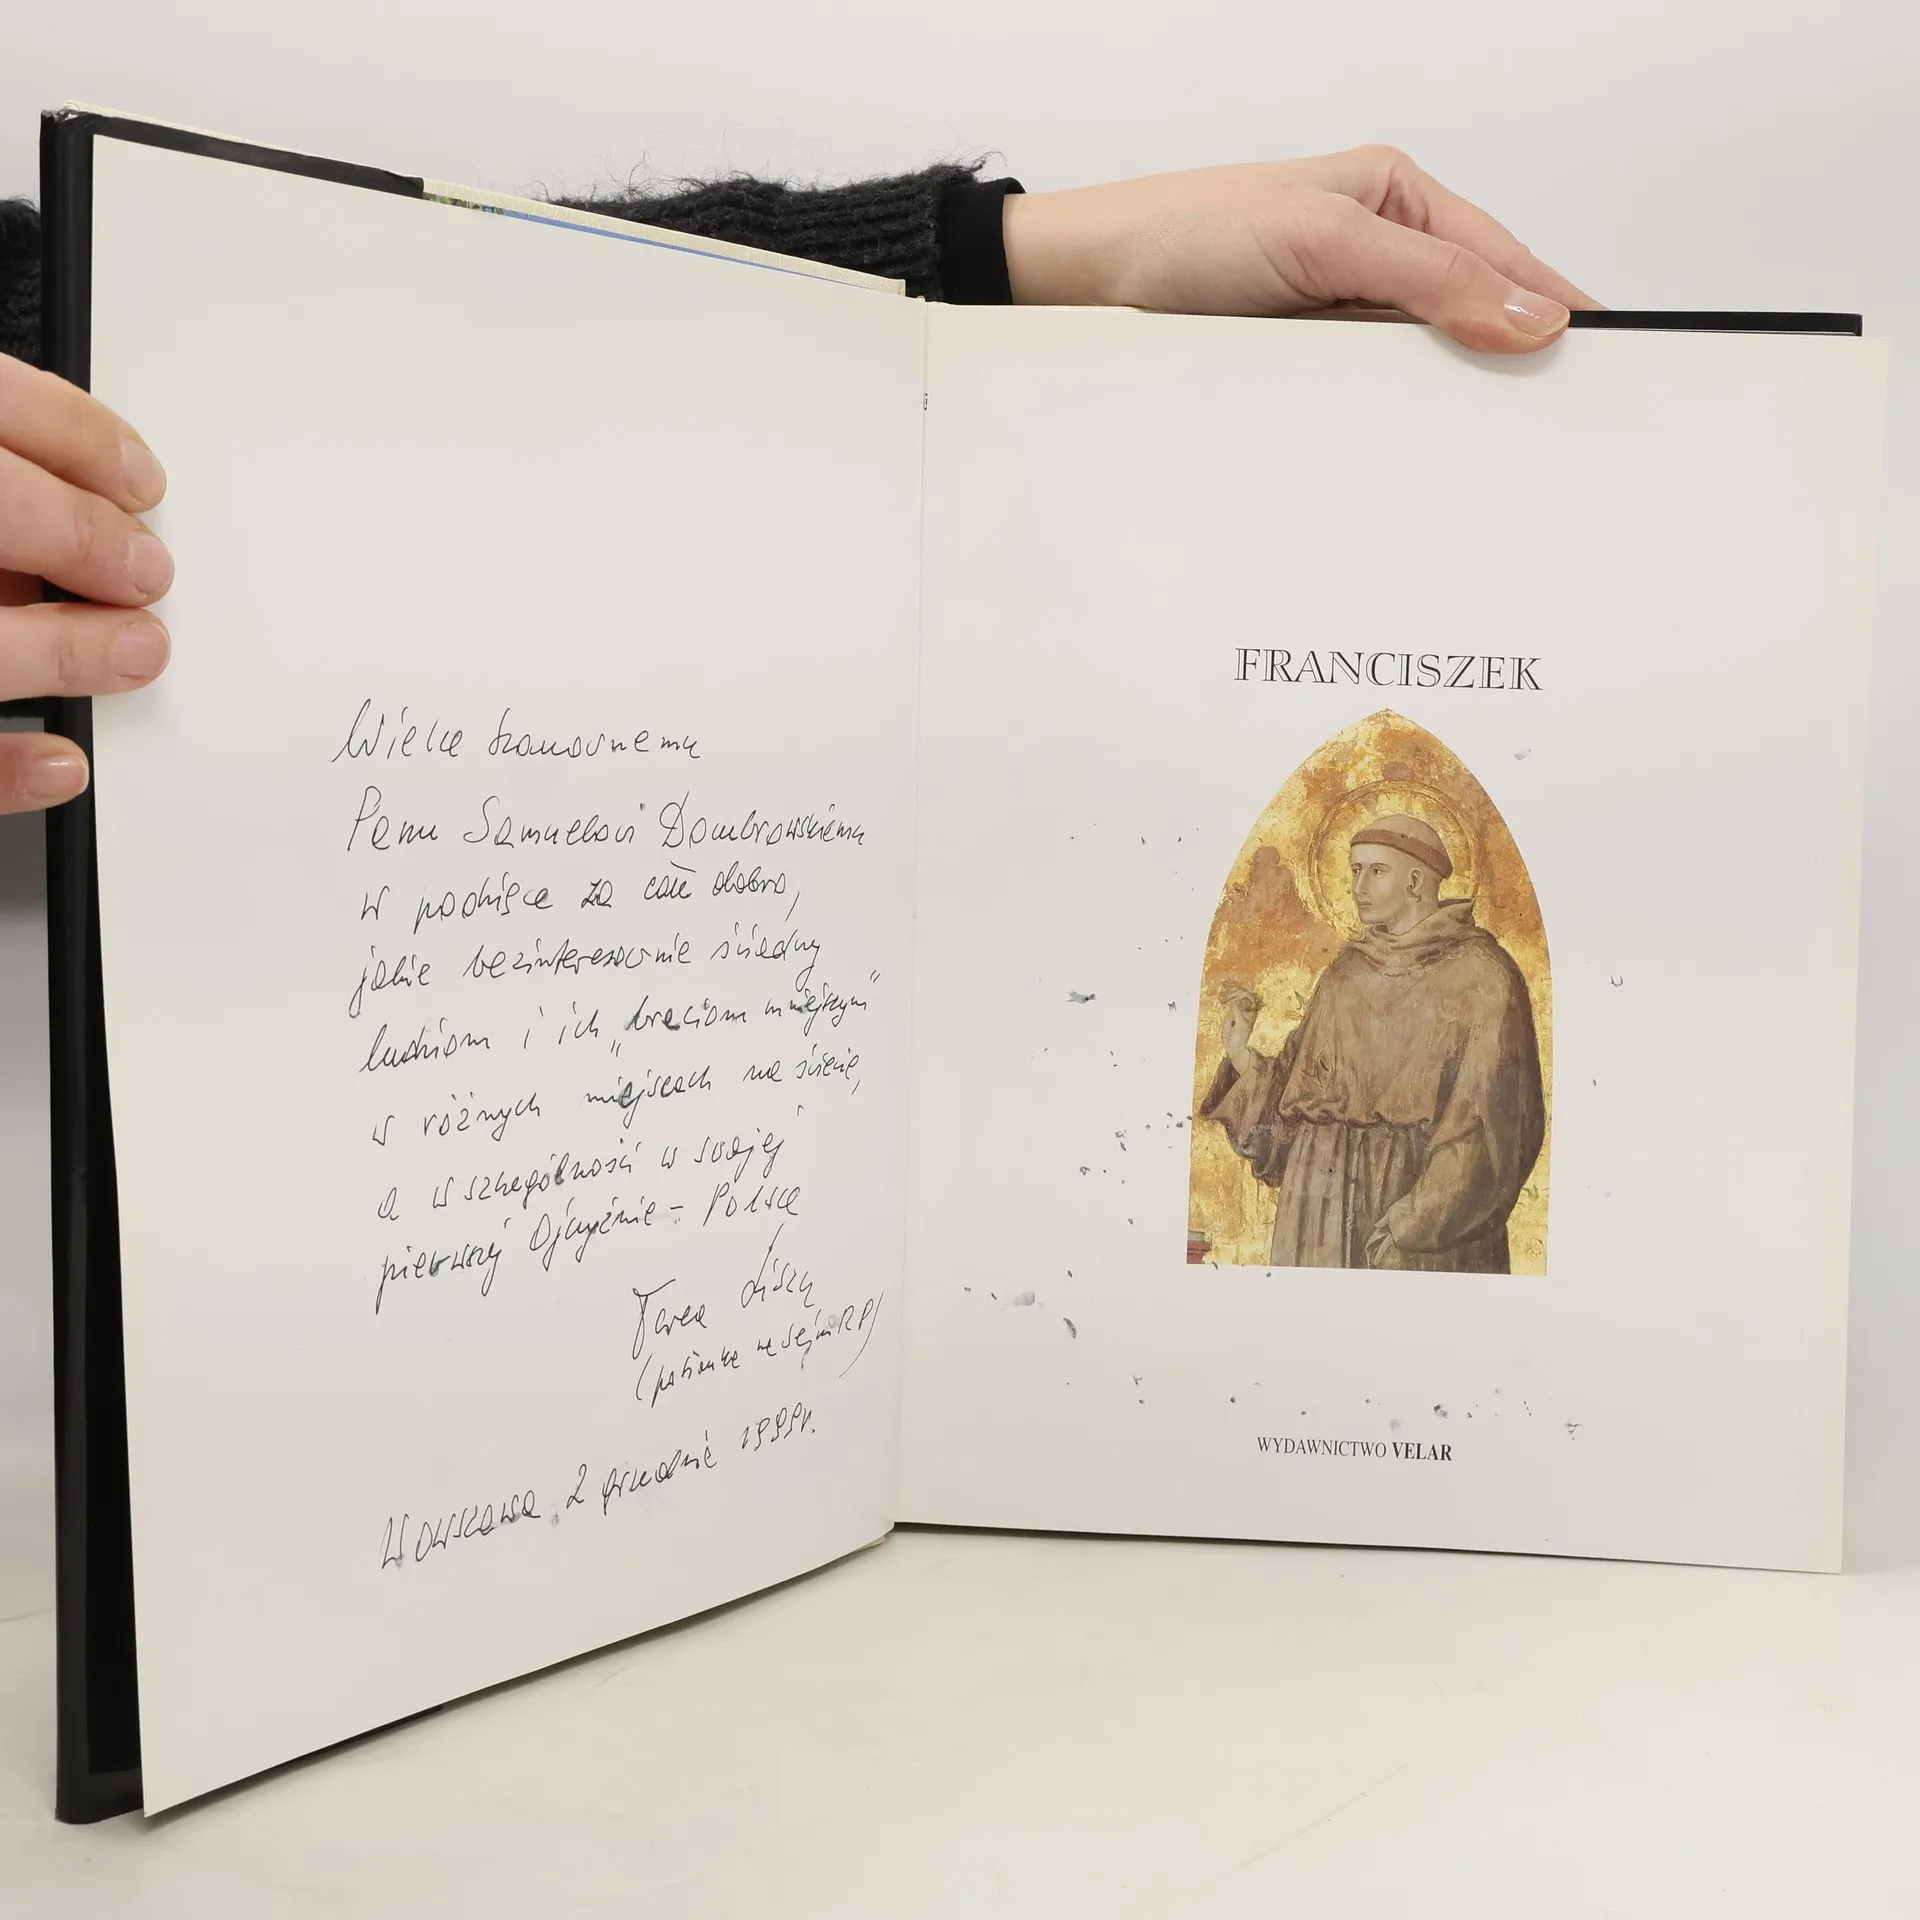 Wielce Szanownemu
Panu Samuelowi Dombrowskiemu
w podzięce za całe dobro,
jakie bezinteresownie świadczy
ludziom i ich „braciom mniejszym"
w różnych miejscach na świecie,
a w szczególności w swojej
pierwszej Ojczyźnie - Polsce
Teresa Liszcz
(posłanka na Sejm RP)
Warszawa, 2 grudnia 1999r.
FRANCISZEK
WYDAWNICTWO VELAR